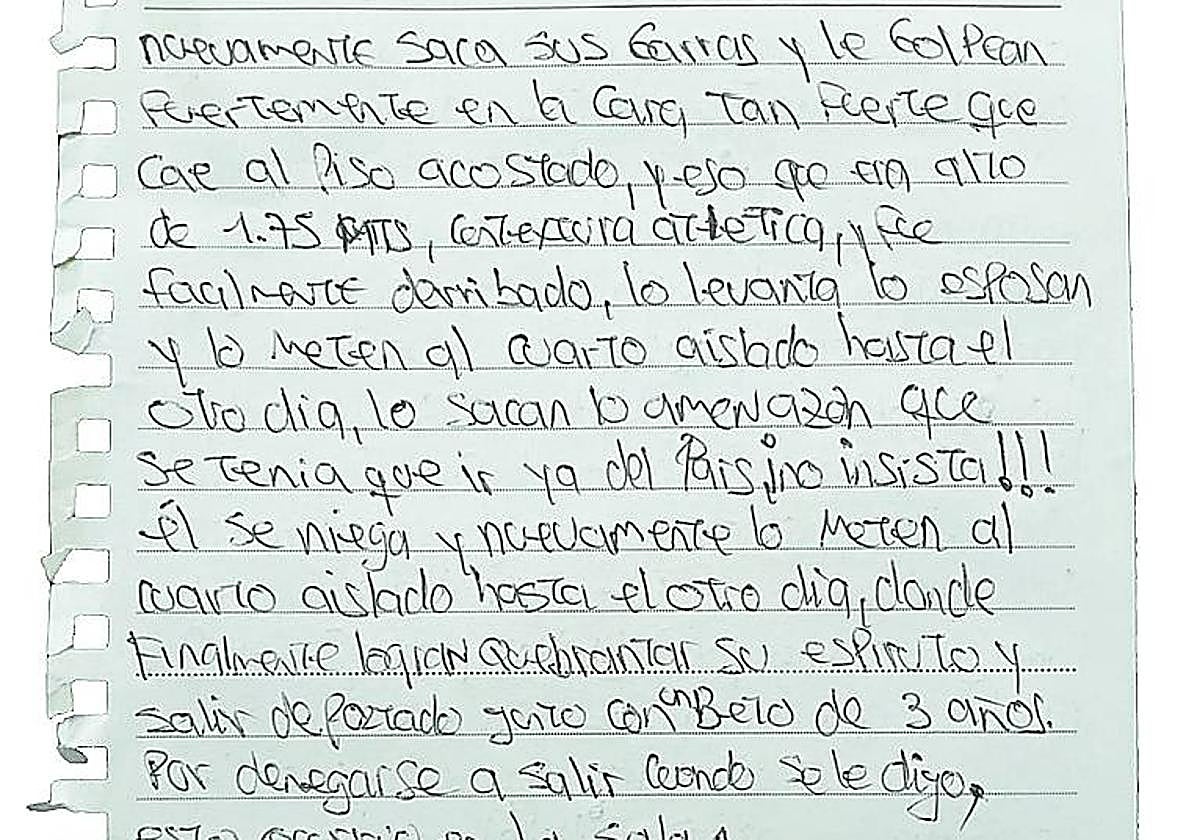 nuevamente saca sus Garras y le Golpean
fuertemente en la Cara, Tan fuerte que
Cae al Piso acostado, y eso que era alto
de 1.75 MTS, contextura atletica, y fue
facilmente derribado, lo levanta lo esposan
y lo meten al cuarto aislado hasta el
otro dia, lo sacan lo amenazán que
se tenia que ir ya del País ¡no insista!!!
él se niega y nuevamente lo meten al
cuarto aislado hasta el otro dia, donde
Finalmente logran quebrantar su espiruto y
salir deportado junto con un Bebo de 3 años.
Por denegarse a salir cuando se le dijo,
esto en la sala